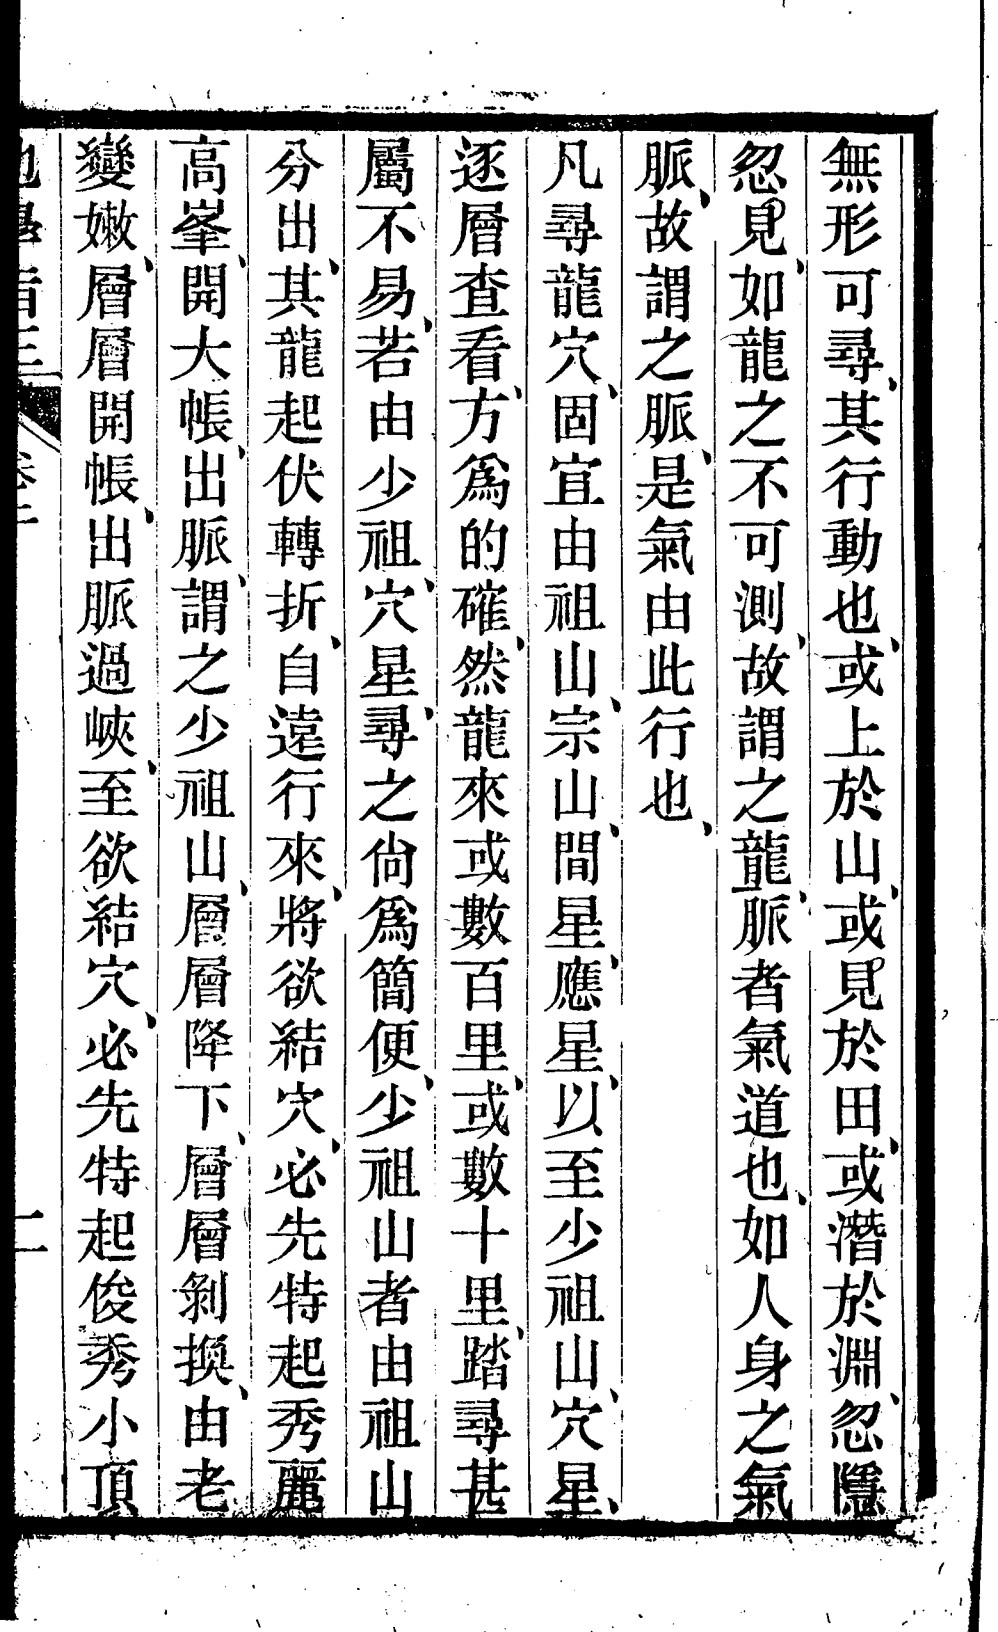 無形可尋、其行動也、或上於山、或見於田、或潛於淵、忽隱
忽見、如龍之不可測、故謂之龍、脈者氣道也、如人身之氣
脈、故謂之脈、是氣由此行也、
凡尋龍穴、固宜由祖山、宗山、間星、應星、以至少祖山、穴星、
逐層查看、方為的確、然龍來或數百里、或數十里、踏尋甚
屬不易、若由少祖、穴星、尋之尙為簡便、少祖山者由祖山
分出、其龍起伏轉折、自遠行來、將欲結穴、必先特起秀麗
高峯、開大帳、出脈、謂之少祖山、層層降下、層層剝換、由老
變嫩、層層開帳、出脈過峽、至欲結穴、必先特起俊秀小頂
二